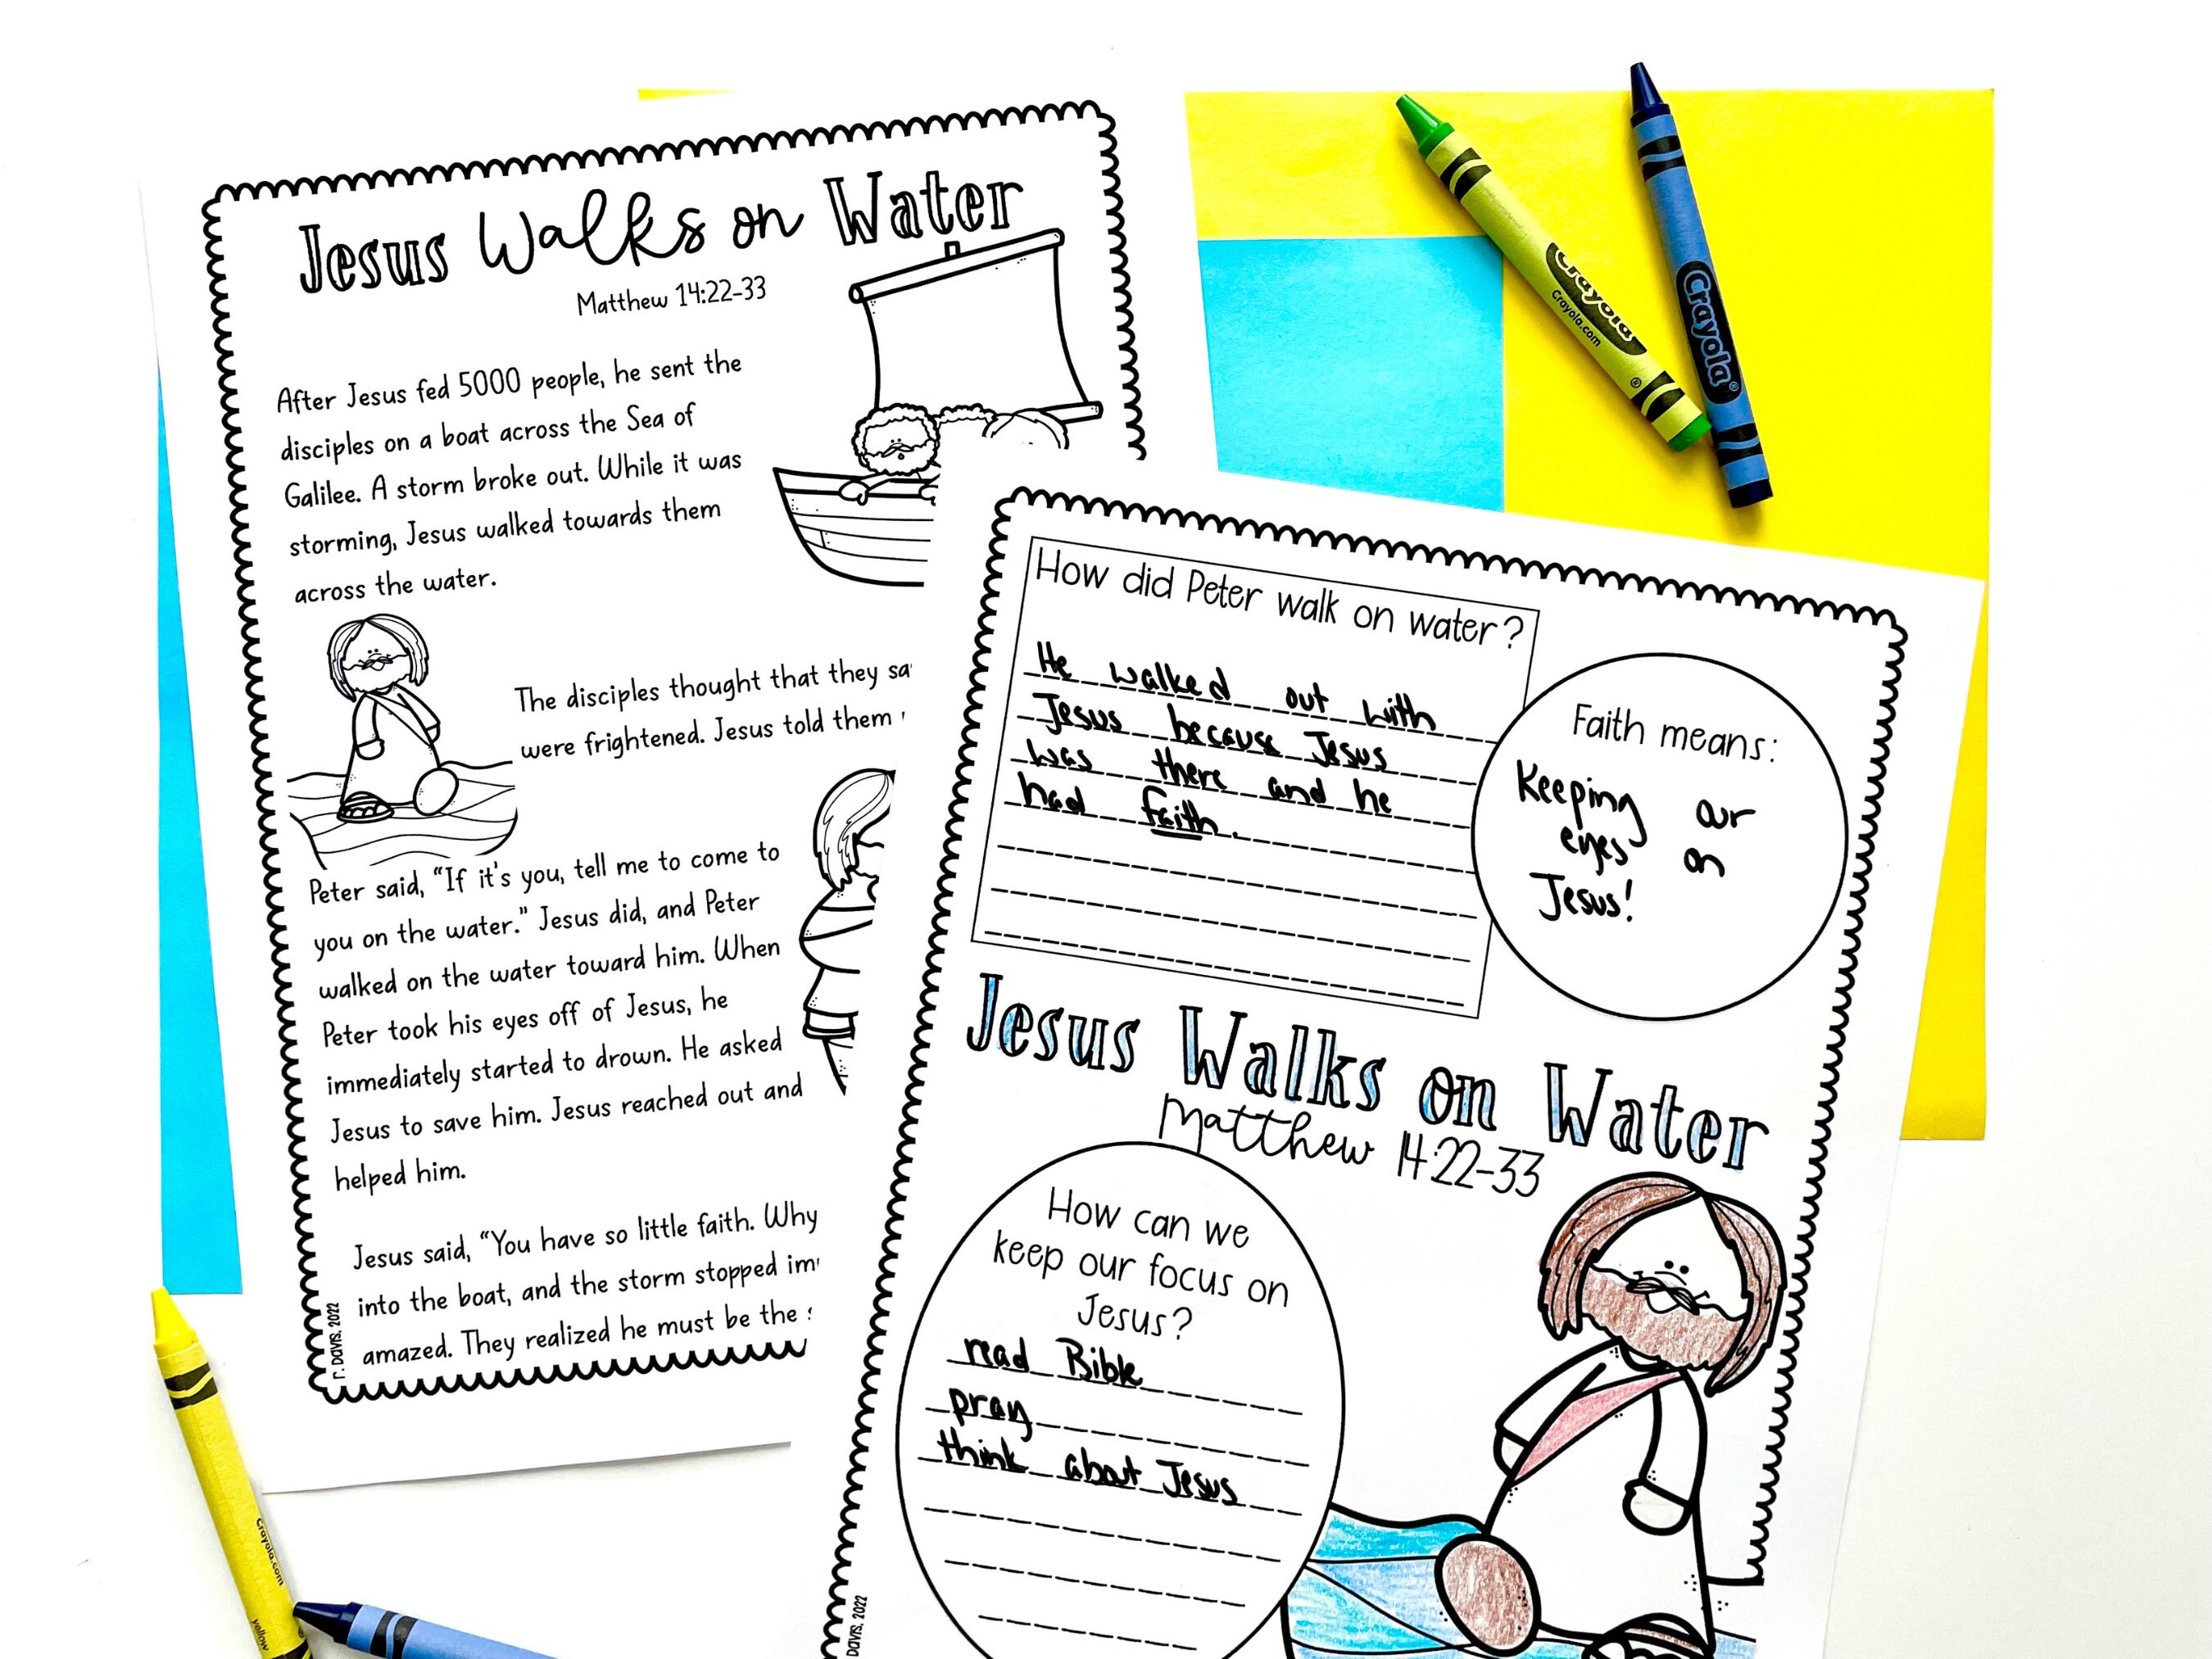 Jesus Walks on Water
Matthew 14:22-33
After Jesus fed 5000 people, he sent the
disciples on a boat across the Sea of
Galilee. A storm broke out. While it was
storming, Jesus walked towards them
across the water.
The disciples thought that they
were frightened. Jesus told them
Peter said, "If it's you, tell me to come to
you on the water." Jesus did, and Peter
walked on the water toward him. When
Peter took his eyes off of Jesus, he
immediately started to drown. He asked
Jesus to save him. Jesus reached out and
helped him.
Jesus said, "You have so little faith. Why
into the boat, and the storm stopped
amazed. They realized he must be the
r. DAVIS, 2022
How did Peter walk on water?
He walked out with
Jesus because Jesus
was there and he
had faith.
Faith means:
Keeping our
eyes on
Jesus!
Jesus Walks on Water
Matthew 14:22-33
How can we
keep our focus on
Jesus?
read Bible
pray
think about Jesus
DAVIS, 2022
Crayola
Crayola.com
Crayola®
Crayola.com
yellow